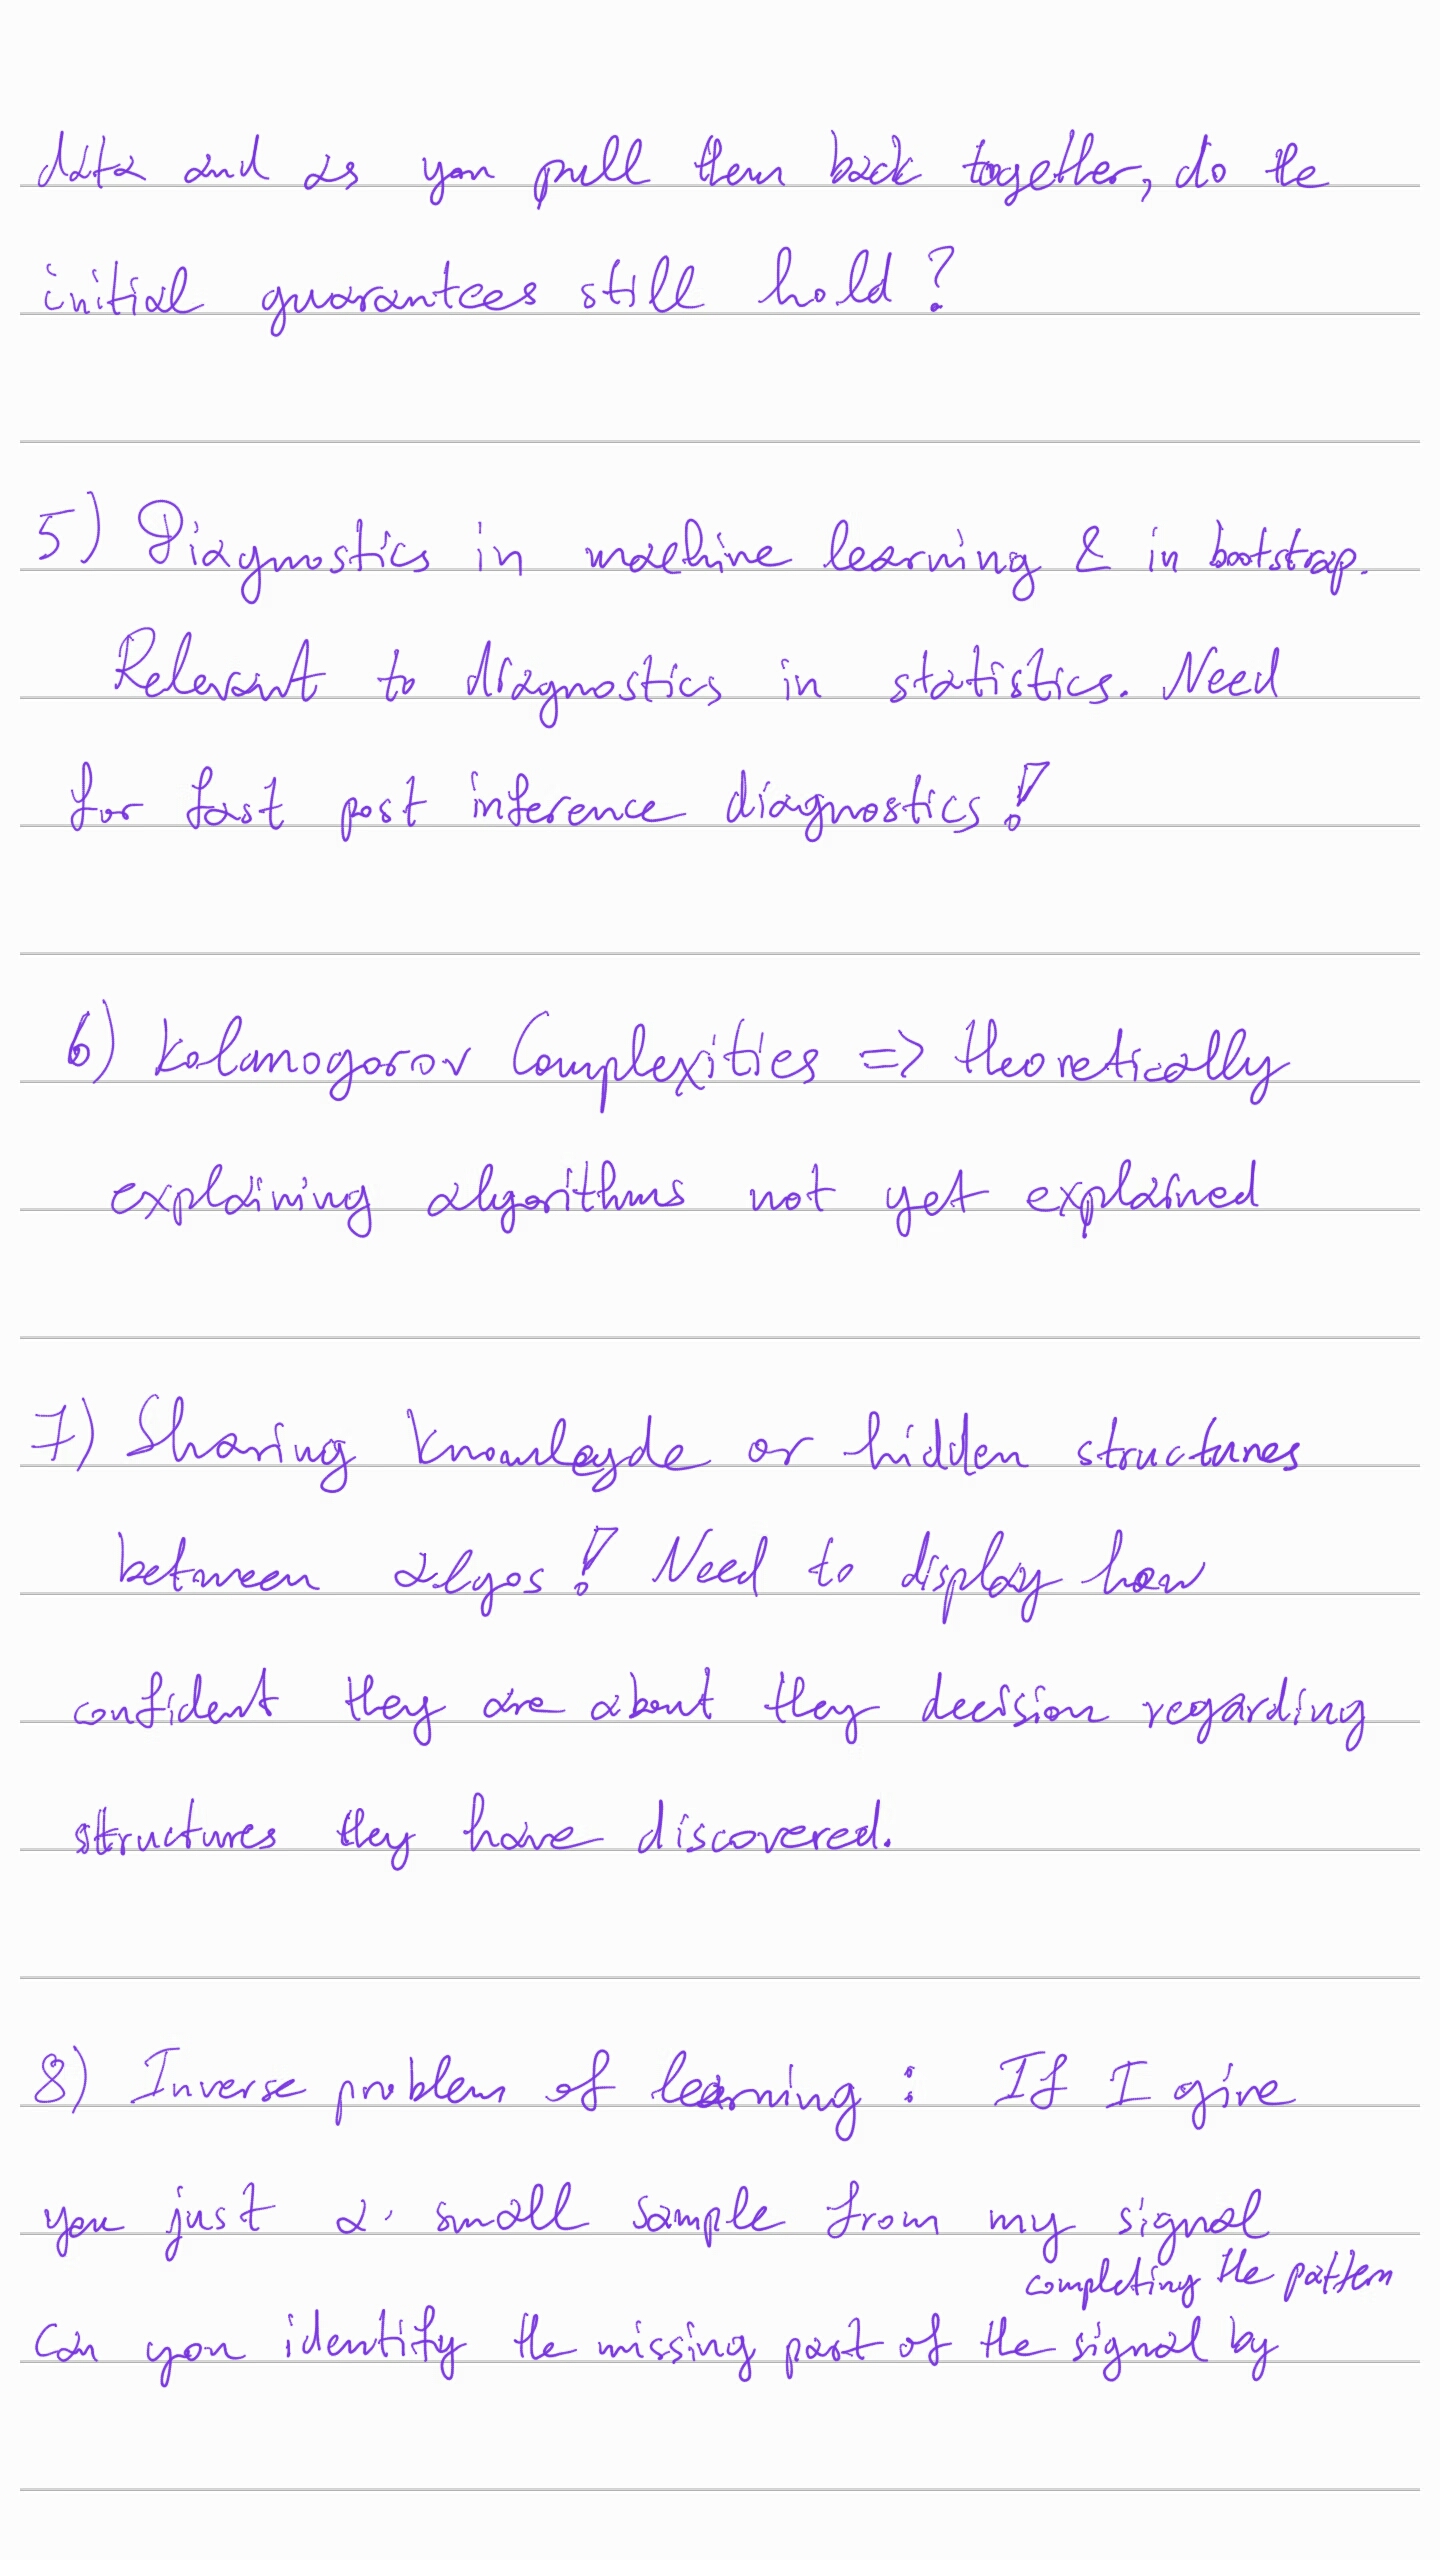 data and as you pull them back together, do the
initial guarantees still hold?
5) Diagnostics in machine learning & in bootstrap.
Relevant to diagnostics in statistics. Need
for fast post inference diagnostics!
6) Kolamogorov Complexities => theoretically
explaining algorithms not yet explained
7) Sharing knowlegde or hidden structures
between algos! Need to display how
confident they are about they decision regarding
structures they have discovered.
8) Inverse problem of learning : If I give
you just a small sample from my signal
completing the pattern
Can you identify the missing part of the signal by